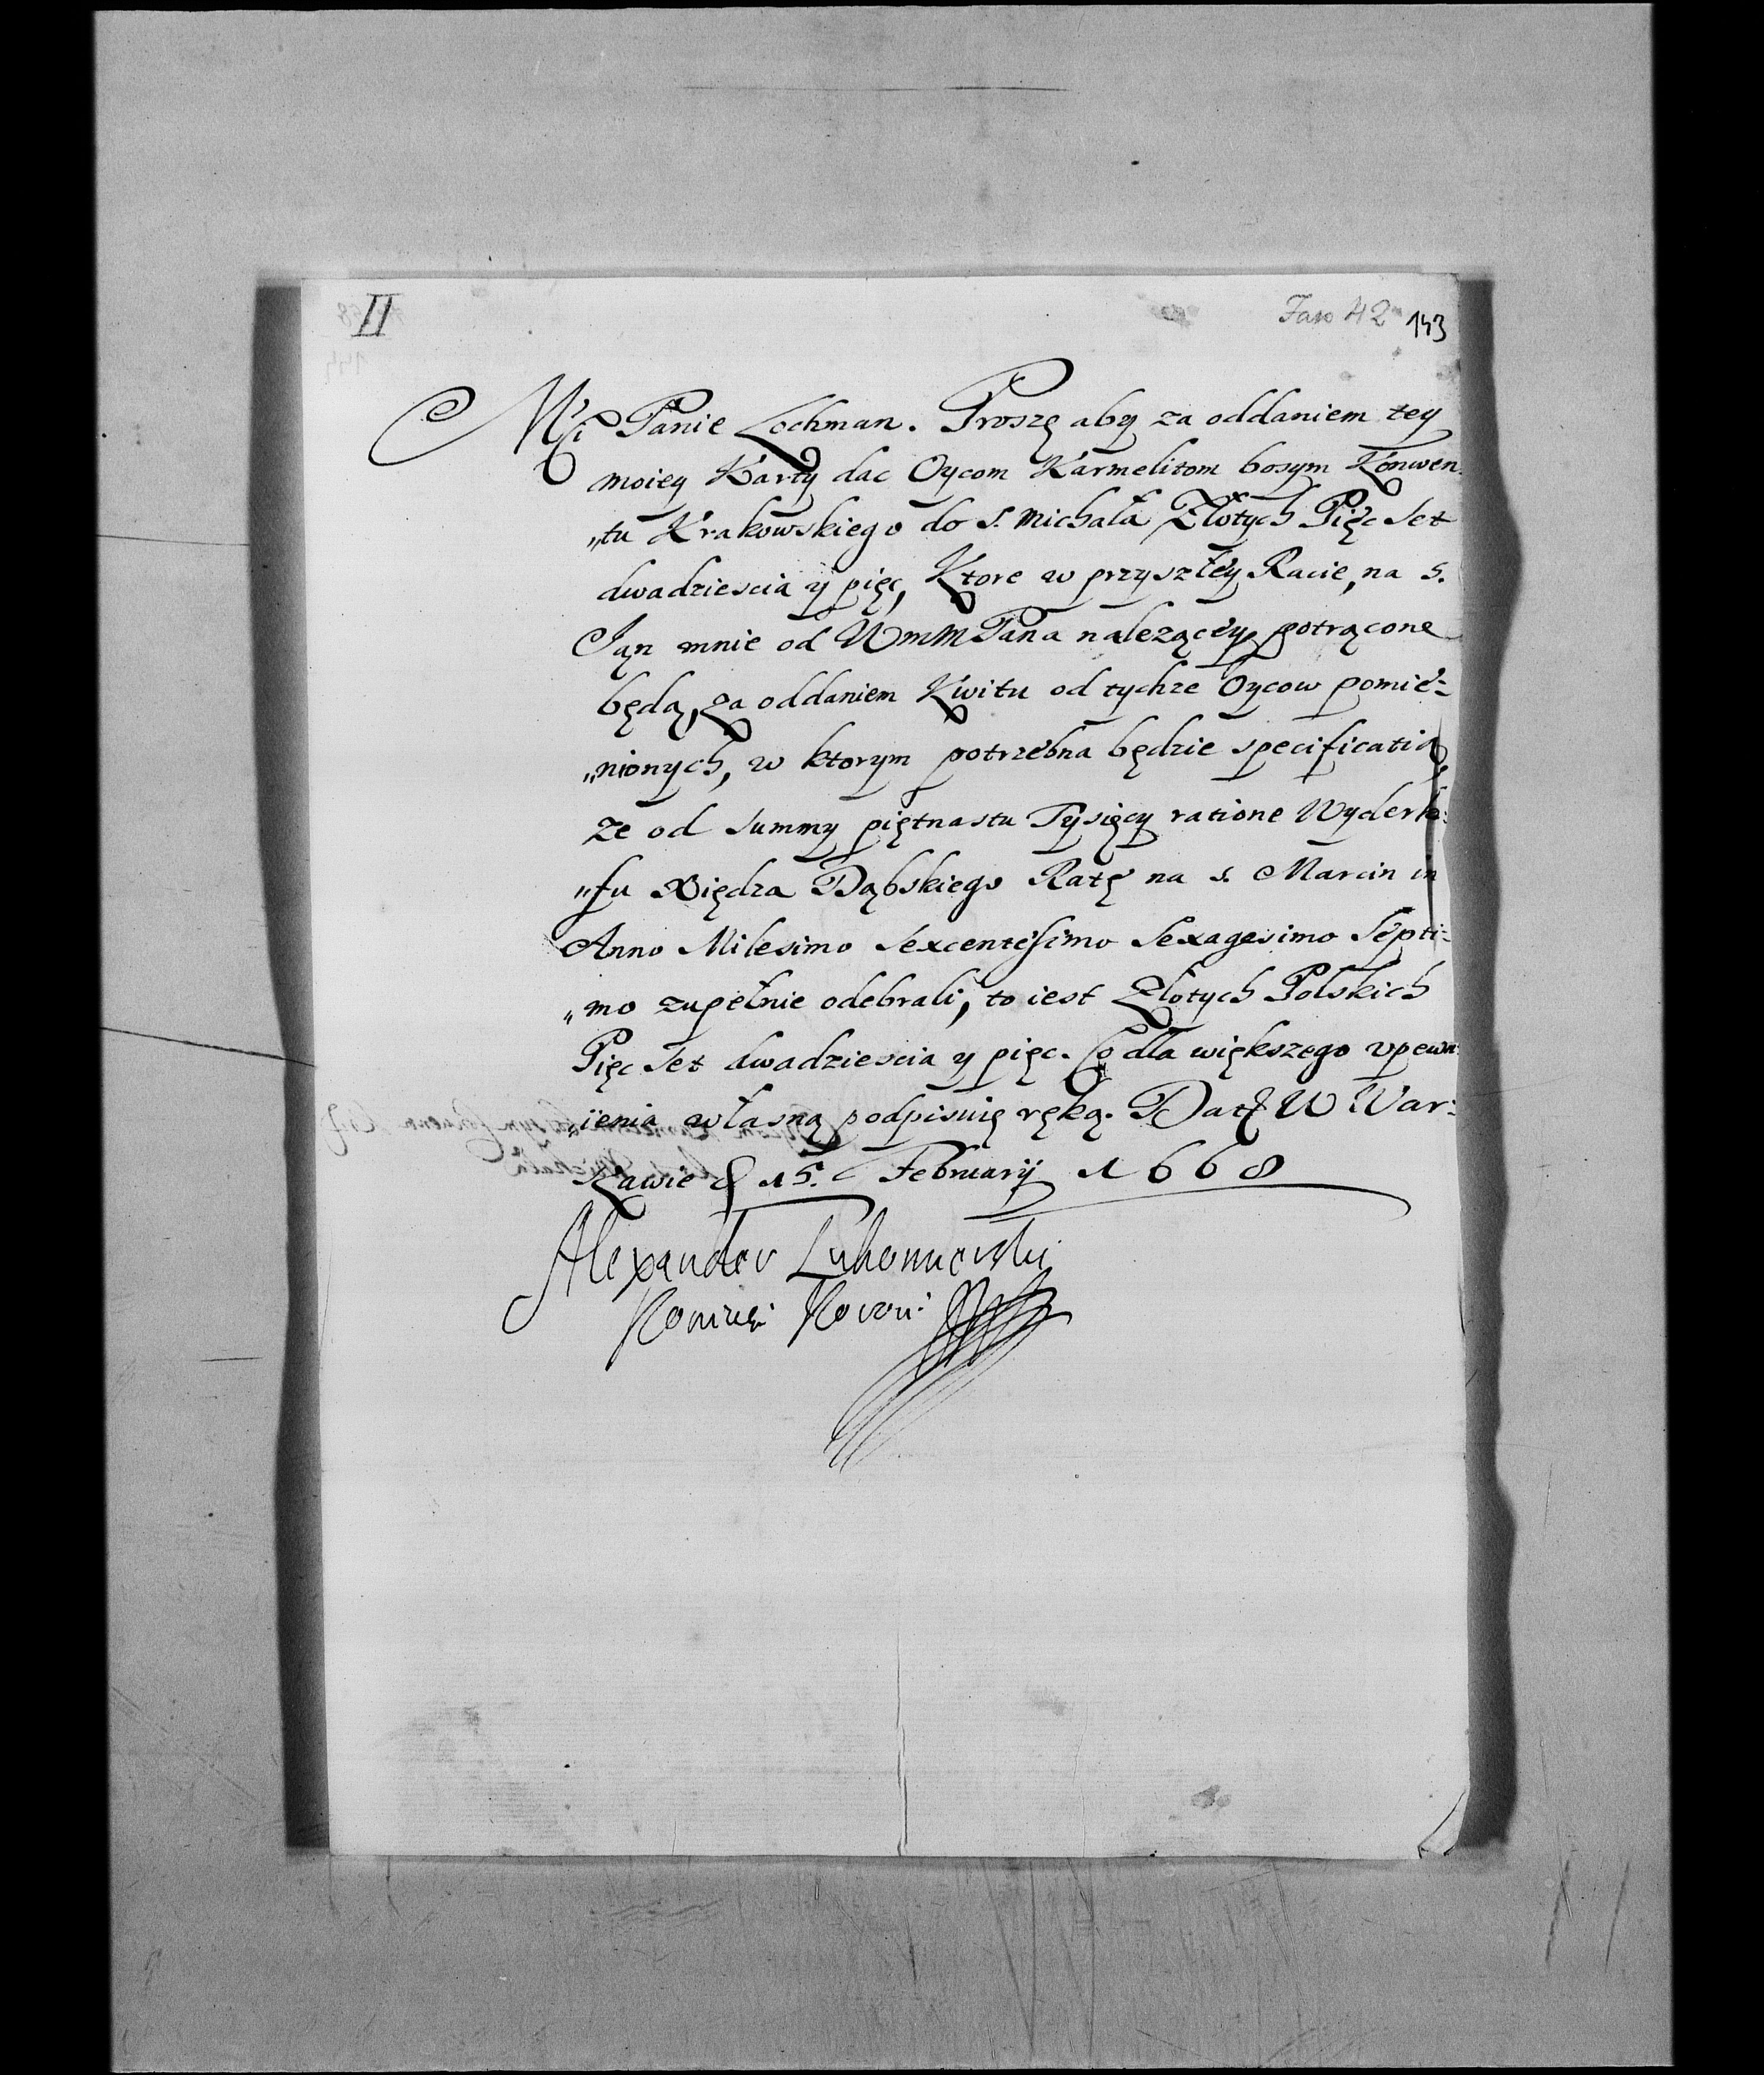 II
Fasc 42 143
Mći Panie Lochman. Proszę aby za oddaniem tey
moiey Karty dac Oycom Karmelitom bosym Konwen-
„tu Krakowskiego do S. Michała Złotych Pięc Set
dwadziescia y pięc, Ktore w przyszłey Racie, na S.
Jan mnie od WmMPana nalezącey potrącone
będą, za oddaniem Kwitu od tychze Oycow pomie-
„nionych, w ktorym potrzebna będzie specificatia,
ze od Summy piętnastu Tysięcy ratione Wyderk-
„fu Xiędza Dąbskiego Ratę na S. Marcin in
Anno Milesimo Sexcentesimo Sexagesimo Septi-
„mo zupełnie odebrali, to iest Złotych Polskich
Pięc Set dwadziescia y pięc. Co dla większego vpewn-
„ienia własną podpisuię ręką. Dat W War-
Zawie D 15. February 1668
Alexander Lubomierski
Koniuszi Koroni